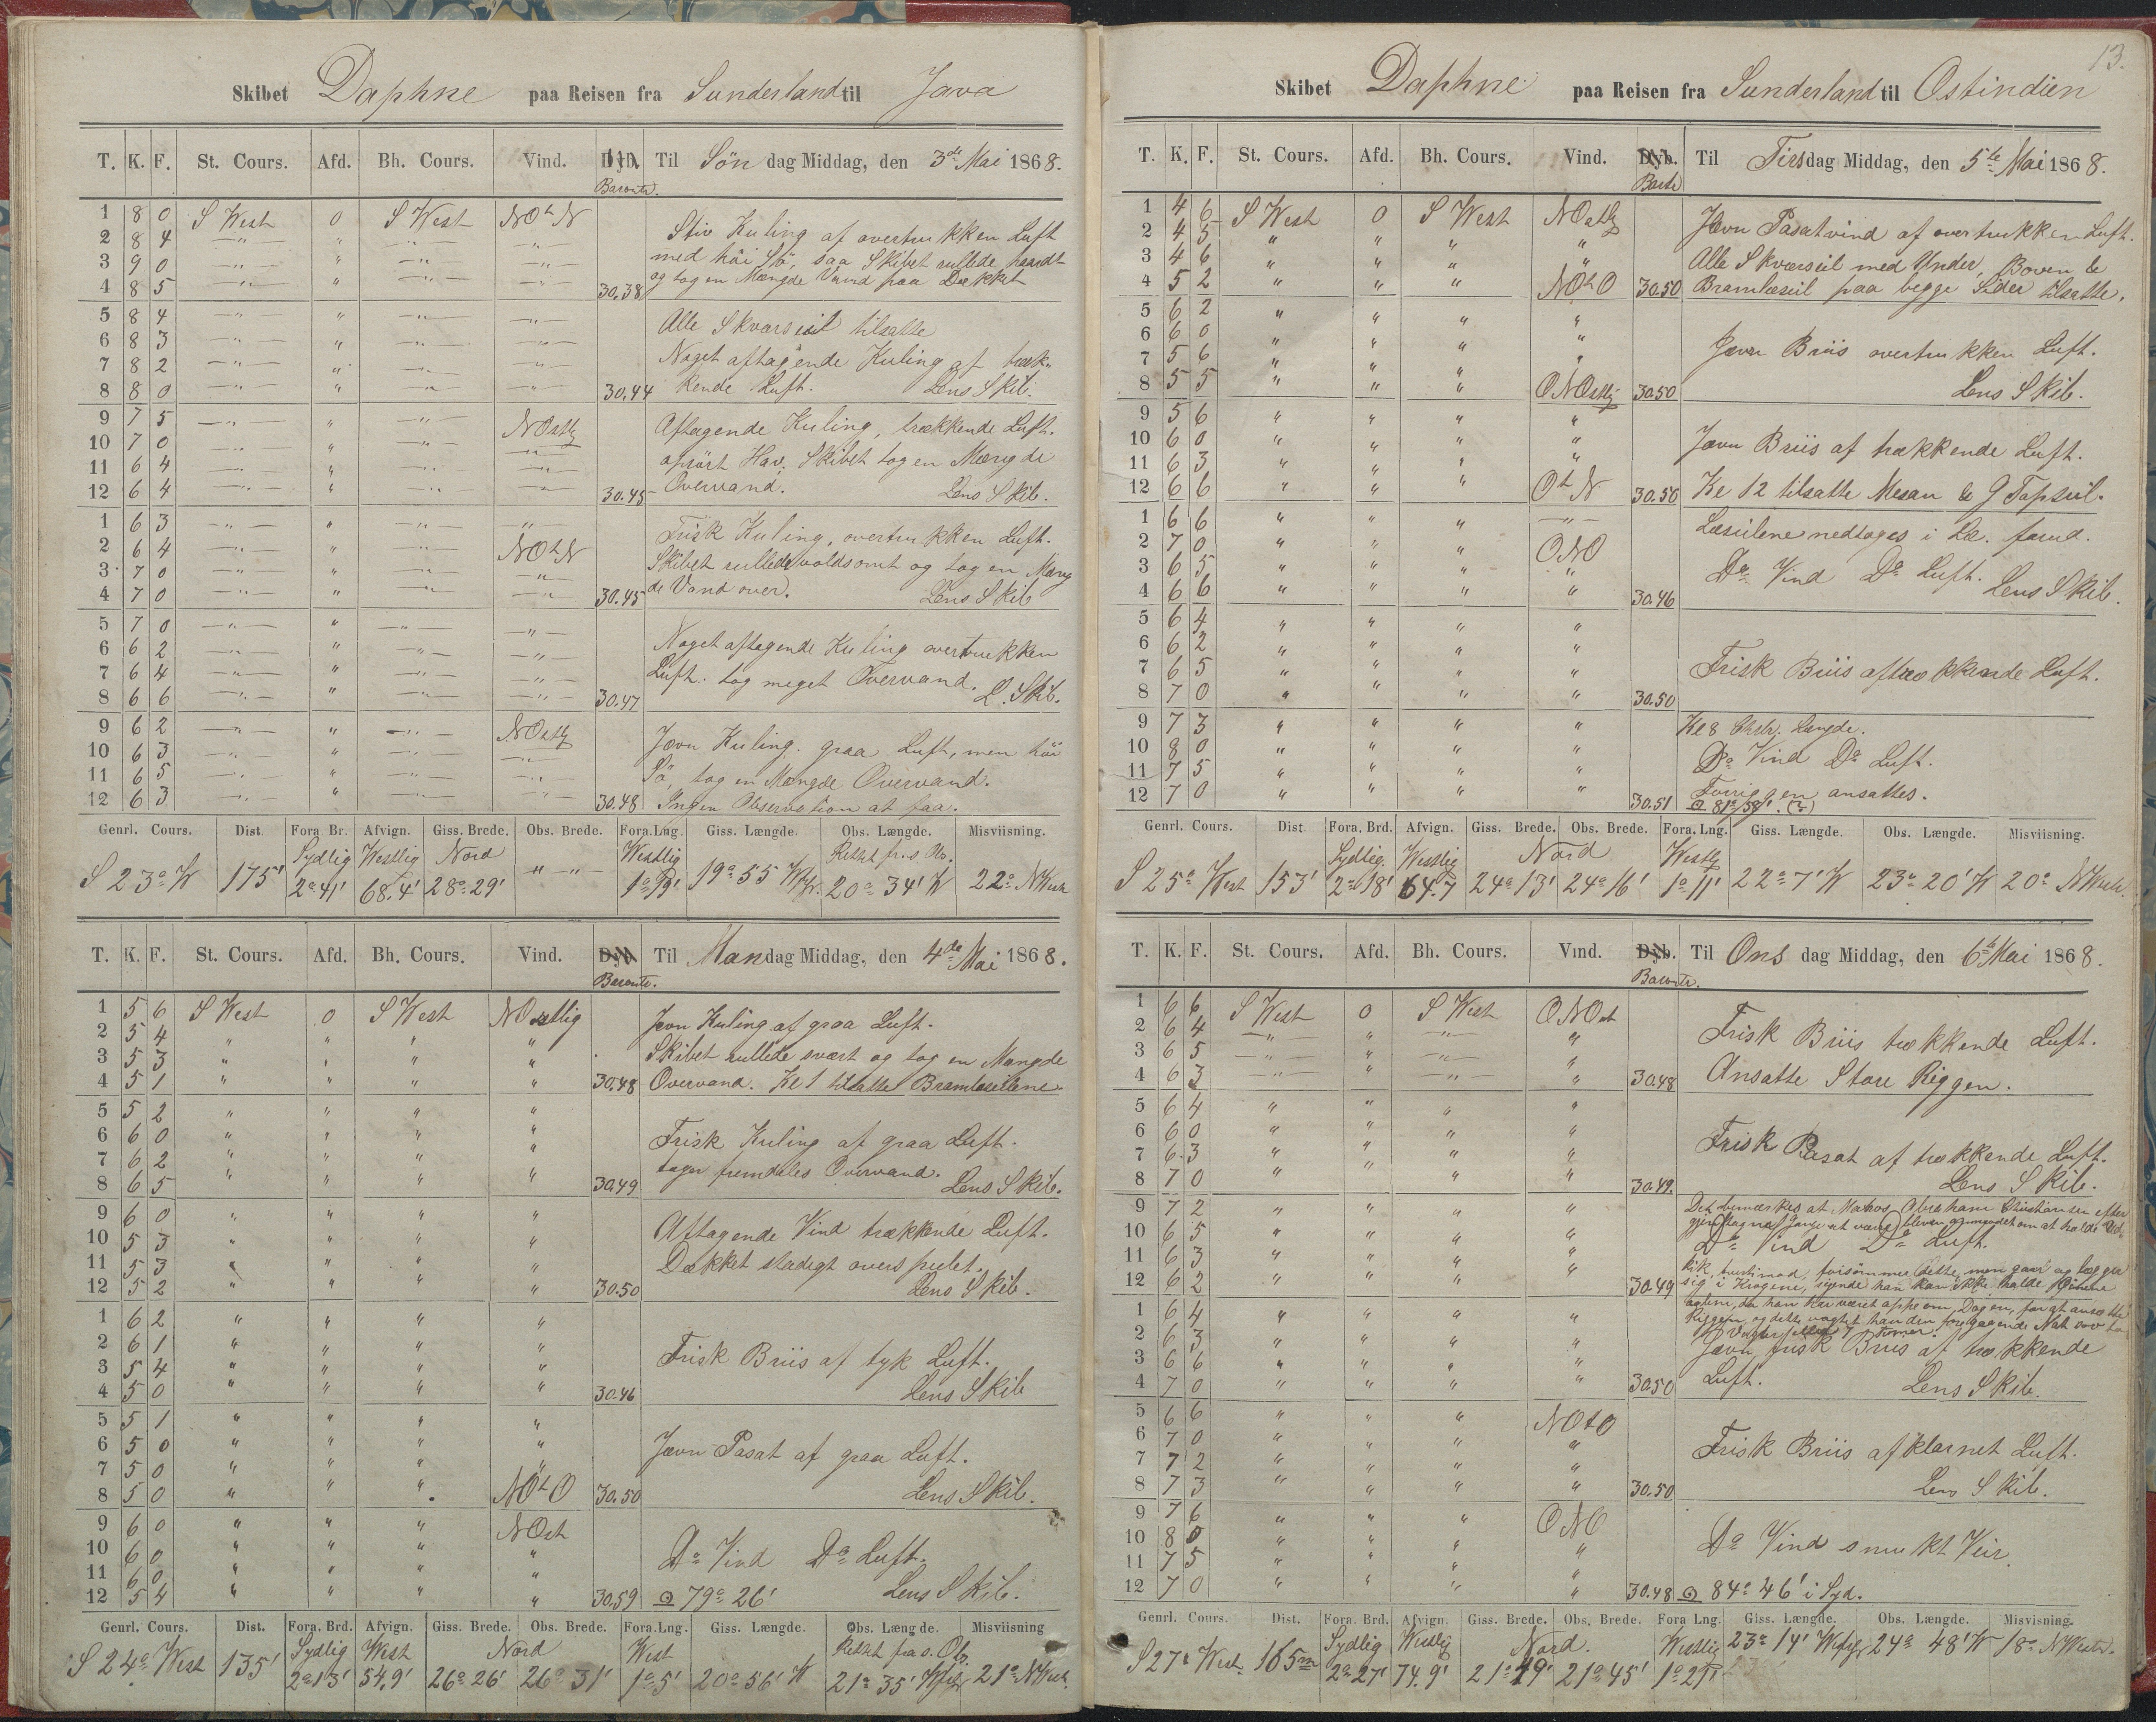 Skibet Daphne paa Reisen fra Sunderland til Java
T. K. F. St. Cours. Afd. Bh. Cours. Vind. Dyb. Til Søndag Middag, den 3de Mai 1868.
Baromtr.
1 8 0 S West 0 S West NOtN
2 8 4 " " " "
3 9 0 " " " "
4 8 5 " " " " 30.38
Stiv Kuling af overtrukken Luft
med höi Sö, saa Skibet rullede haardt
og tog en Mængde Vand paa Dækket
5 8 4 " " " "
6 8 3 " " " "
7 8 2 " " " "
8 8 0 " " " " 30.44
Alle Skværseil tilsatte
Noget aftagende Kuling af træk-
kende Luft. Lens Skib.
9 7 5 " " " NOstlg
10 7 0 " " " "
11 6 4 " " " "
12 6 4 " " " " 30.45
Aftagende Kuling, trækkende Luft.
oprört Hav. Skibet tog en Mængde
Overvand. Lens Skib.
1 6 3 " " " "
2 6 4 " " " NOtN
3 7 0 " " " "
4 7 0 " " " " 30.45
Frisk Kuling, overtrukken Luft.
Skibet rullede voldsomt og tog en Mæng
de Vand over. Lens Skib
5 7 0 " " " "
6 6 2 " " " "
7 6 4 " " " "
8 6 6 " " " " 30.47
Noget aftagende Kuling overtrukken
Luft. tog meget Overvand. L. Skib.
9 6 2 " " " NOstlg
10 6 3 " " " "
11 6 5 " " " "
12 6 3 " " " " 30.48
Jevn Kuling. graa Luft, men höi
Sö, tog en Mængde Overvand.
Ingen Observation at faa.
Genrl. Cours. Dist. Fora. Br. Afvign. Giss. Brede. Obs. Brede. Fora. Lng. Giss. Længde. Obs. Længde. Misviisning.
Sydlig Westlig Nord Westlig Rettet fr. s. Obs.
S 23° W 175' 2° 41' 68.4' 28° 29' " " 1° 19' 19° 55 W 20° 34' W 22° NWest
T. K. F. St. Cours. Afd. Bh. Cours. Vind. Dyb Til Mandag Middag, den 4de Mai 1868.
Baromtr.
1 5 6 S West 0 S West NOstlig
2 5 4 " " " "
3 5 3 " " " "
4 5 1 " " " " 30.48
Jevn Kuling af graa Luft.
Skibet rullede svært og tog en Mængde
Overvand. Kl 1 tilsatte Bramlæseilene.
5 5 2 " " " "
6 6 0 " " " "
7 6 2 " " " "
8 6 5 " " " " 30.49
Frisk Kuling af graa Luft.
tager fremdeles Overvand. Lens Skib.
9 6 0 " " " "
10 5 3 " " " "
11 5 3 " " " "
12 5 2 " " " " 30.50
Aftagende Vind trækkende Luft.
Dækket stadigt overspulet.
Lens Skib.
1 6 2 " " " "
2 6 1 " " " "
3 5 4 " " " "
4 5 0 " " " " 30.46
Frisk Briis af tyk Luft.
Lens Skib
5 5 1 " " " "
6 5 0 " " " "
7 5 0 " " " "
8 5 0 " " " NOtO 30.50
Jevn Pasat af graa Luft.
Lens Skib.
9 6 0 " " " NOst
10 6 0 " " " "
11 6 0 " " " "
12 5 4 " " " " 30.59
Do Vind Do Luft.
79° 26' Lens Skib.
Genrl. Cours. Dist. Fora. Brd. Afvign. Giss. Brede. Obs. Brede. Fora. Lng. Giss. Længde. Obs. Længde. Misviisning
Sydlig West Nord West Rettet fra s. Ob.
S 24° West 135' 2° 13' 54.9' 26° 26' 26° 31' 1° 5' 20° 56' W 21° 35' 21° NWest
13.
Skibet Daphne paa Reisen fra Sunderland til Ostindien
T. K. F. St. Cours. Afd. Bh. Cours. Vind. Dyb. Til Tirsdag Middag, den 5te Mai 1868.
1 4 6 S West 0 S West NOstlg
2 4 5 " " " "
3 4 6 " " " "
4 5 2 " " " NOtO 30.50
Jævn Pasatvind af overtrukken Luft.
Alle Skværseil med Under, Boven &
Bramlæseil paa begge Sider tilsatte.
5 6 2 " " " "
6 6 0 " " " "
7 5 6 " " " "
8 5 5 " " " ONOstlg 30.50
Jævn Briis overtrukken Luft.
Lens Skib.
9 5 6 " " " "
10 6 0 " " " "
11 6 3 " " " "
12 6 6 " " " OtN 30.50
Jævn Briis af trækkende Luft.
Kl 12 tilsatte Mesan & G Topseil.
1 6 6 " " " "
2 7 0 " " " ONO
3 6 5 " " " "
4 6 6 " " " " 30.46
Læseilene nedtoges i Læ. forud.
Do Vind Do Luft. Lens Skib.
5 6 4 " " " "
6 6 2 " " " "
7 6 5 " " " "
8 7 0 " " " " 30.50
Frisk Briis af trækkende Luft.
9 7 3 " " " "
10 8 0 " " " "
11 7 5 " " " "
12 7 0 " " " " 30.51
Kl 8 Længde.
Do Vind Do Luft.
Forriggen ansattes.
81° 58'
Genrl. Cours. Dist Fora. Brd. Afvign. Giss. Brede. Obs. Brede. Fora. Lng. Giss. Længde. Obs. Længde. Misviisning.
Sydlig Westlig Nord Westlg
S 25° West 153' 2° 18' 64.7 24° 13' 24° 16' 1° 11' 22° 7' W 23° 20' W 20° NWest
T. K. F. St. Cours. Afd. Bh. Cours. Vind. Dyb. Til Onsdag Middag, den 6te Mai 1868.
Baromtr.
1 6 6 S West 0 S West ONOst
2 6 4 " " " "
3 6 5 " " " "
4 6 3 " " " " 30.48
Frisk Briis trækkende Luft.
Ansatte Store Riggen.
5 6 4 " " " "
6 6 0 " " " "
7 6 3 " " " "
8 7 0 " " " " 30.49.
Frisk Pasat af trækkende Luft.
Lens Skib.
9 7 2 " " " "
10 6 5 " " " "
11 6 3 " " " "
12 6 2 " " " " 30.49
Det bemærkes at Matros Abraham Christiansen efter
gjentagne Gange at være bleven anmodet om at holde Ud-
Do Vind Do Luft.
kik, forsømmer dette, men gaar og lægger
sig i Krogene, sigende han kan ikke holde Øinene
aabne, da han har været oppe om Dagen, for at ansætte
Riggen, og dette han den foregaaende Nat sov
7 Timer.
1 6 4 " " " "
2 6 3 " " " "
3 6 6 " " " "
4 7 0 " " " " 30.50
Jævn frisk Briis af trækkende
Luft. Lens Skib.
5 6 6 " " " NOtO
6 7 0 " " " "
7 7 2 " " " "
8 7 3 " " " " 30.50
Frisk Briis af klarnet Luft.
Lens Skib.
9 7 6 " " " ONO
10 8 0 " " " "
11 7 5 " " " "
12 7 0 " " " " 30.48
Do Vind smukt Veir.
84° 46' i Syd.
Genrl. Cours. Dist. Fora. Brd. Afvign. Giss. Brede. Obs. Brede. Fora Lng. Giss. Længde. Obs. Længde. Misvisning.
Sydlig Westlig Nord. Westlig
S 27° West. 165 2° 27' 74.9' 21° 49' 21° 45' 1° 21' 23° 14' 24° 48' W 18° NWest.